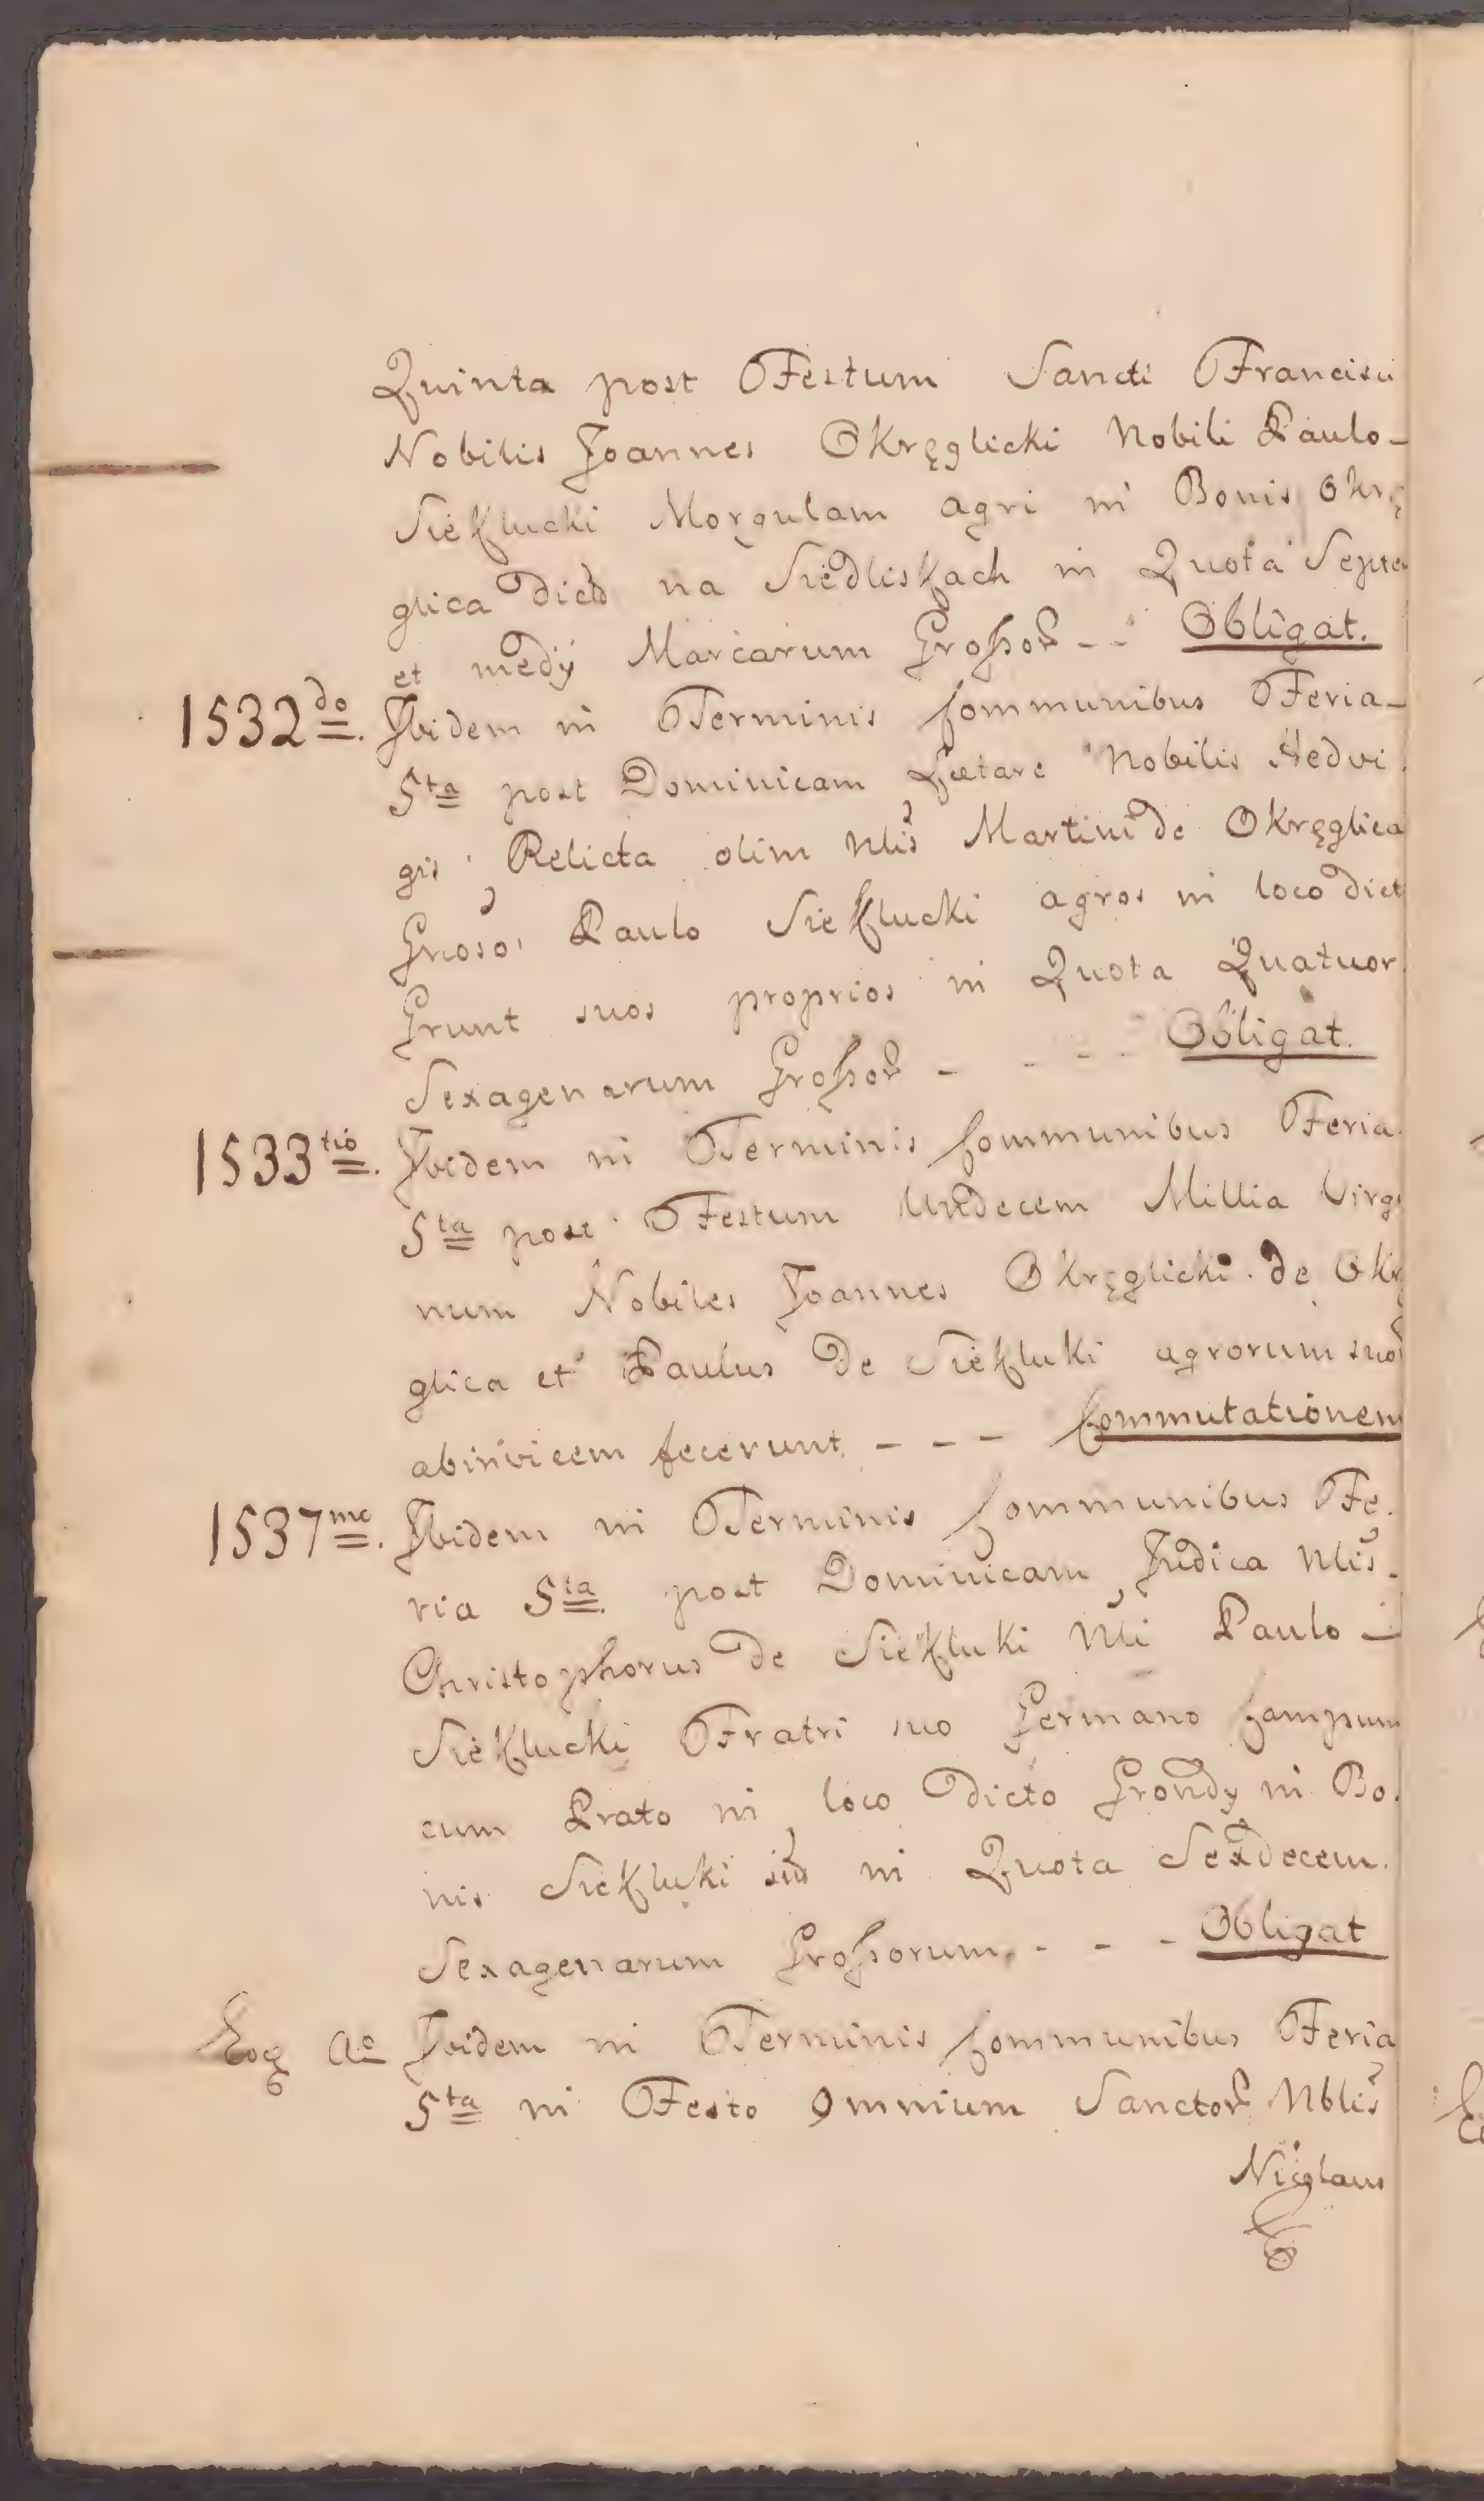 Quinta post Festum Sancti Francisci
Nobilis Joannes Okręglicki Nobili Paulo -
Siekłucki Morgulam agri in Bonis Okrę
glica dict na Siedliskach in Quota Septe
et medÿ Marcarum Großor - - Obligat.
1532do. Ibidem in Terminis Communibus Feria -
5ta post Dominicam Lætare Nobilis Hedvi
gis Relicta olim Nlis Martini de Okręglica
Gnoso Paulo Siekłucki agros in loco dict
Grunt suos proprios in Quota Quatuor
Sexagenarum Großor - - - - Obligat.
1533tio. Ibidem in Terminis Communibus Feria
5ta post Festum Undecem Millia Virgi
num Nobiles Joannes Okręglicki de Okrę
glica et Paulus de Siekłuki agrorum suor
abinvicem fecerunt - - - Commutationem
1537mo. Ibidem in Terminis Communibus Fe.
ria 5ta post Dominicam Judica Nlis.
Christophorus de Siekłuki Nli Paulo -
Siekłucki Fratri suo Germano Campum
cum Prato in loco dicto Grondy in Bo.
nis Siekłuki in Quota Sexdecem.
Sexagenarum Großorum - - - Obligat
Eoq Ao Ibidem in Terminis Communibus Feria
5ta in Festo Omnium Sanctor Nblis
Nicolaus